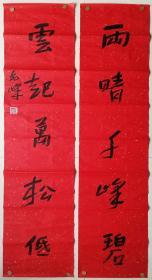 雨晴千峰碧
雲起萬松低